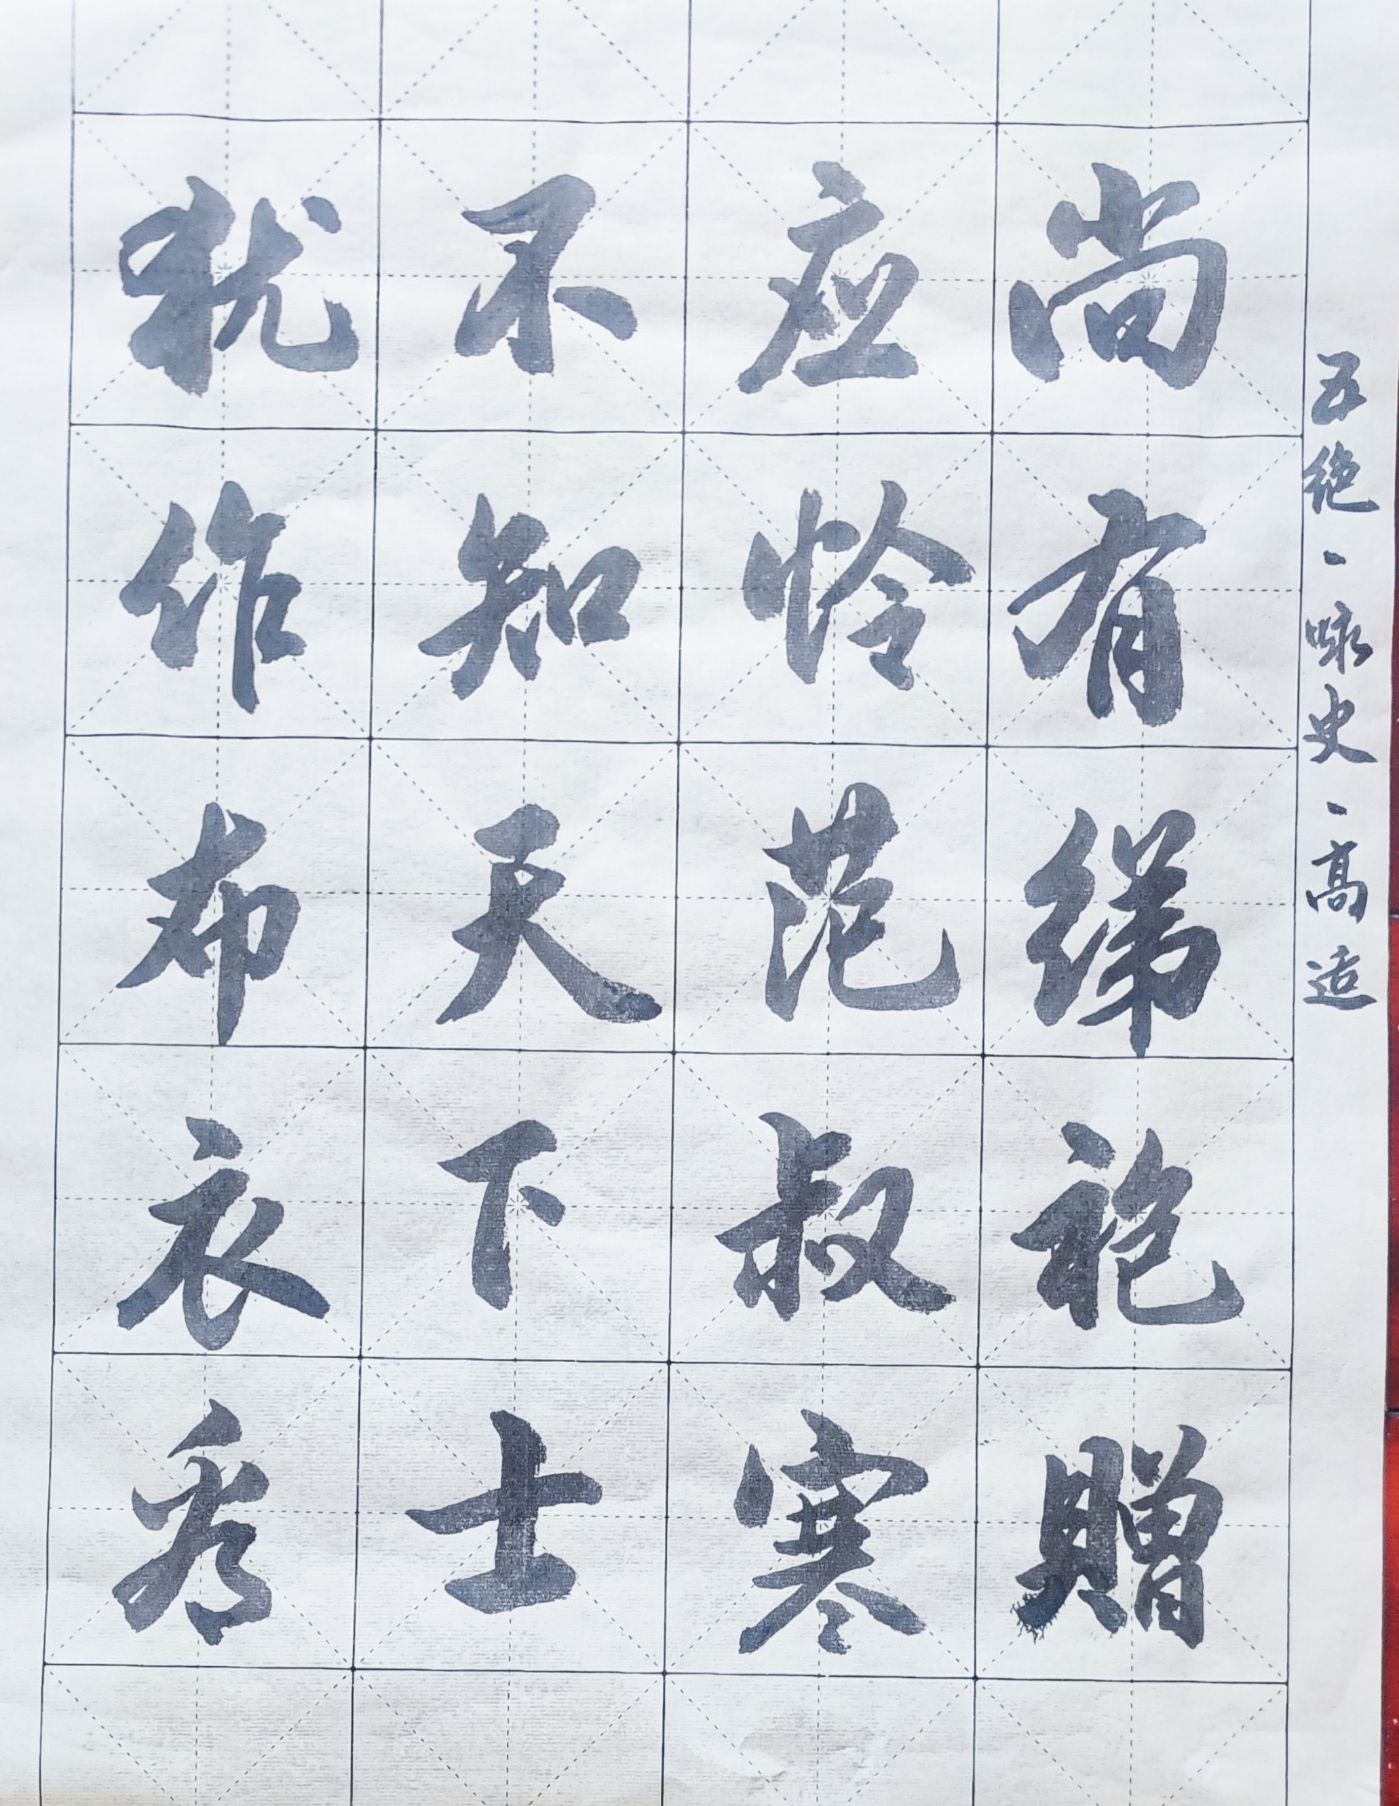 五绝·咏史·高适
尚有绨袍贈
应怜范叔寒
不知天下士
犹作布衣看